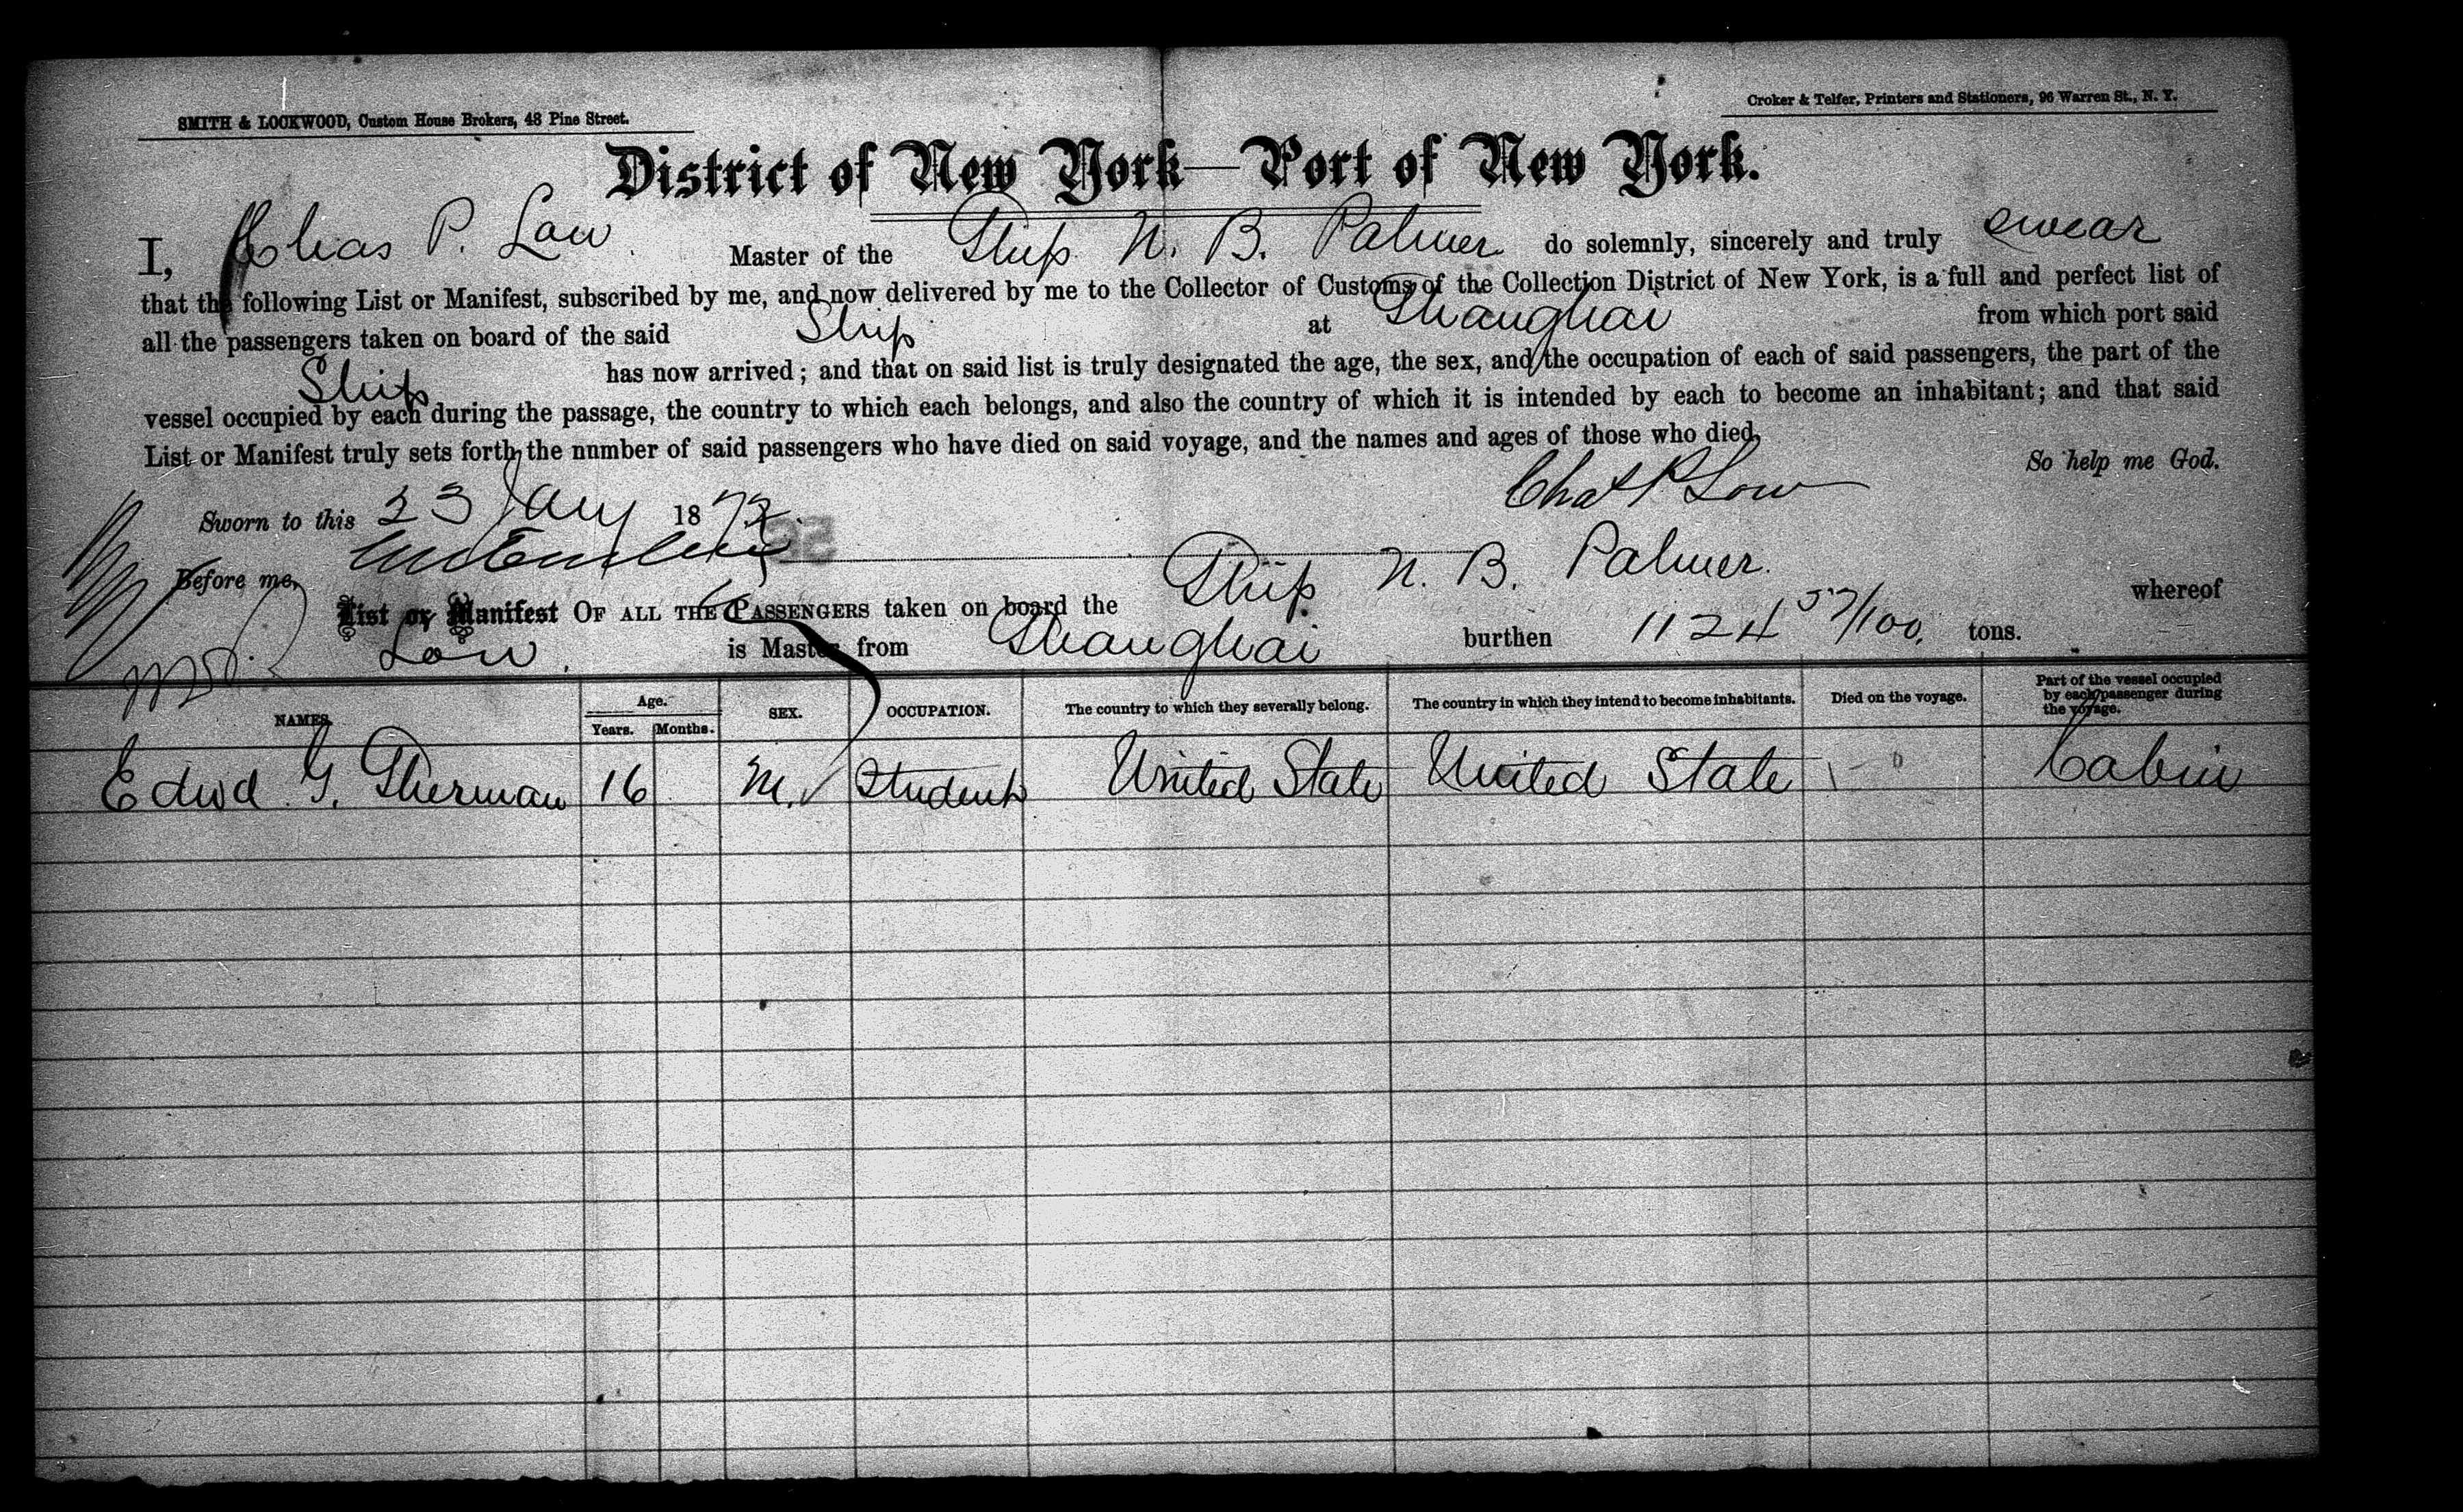 SMITH & LOCKWOOD, Custom House Brokers, 48 Pine Street.
Croker & Telfer, Printers and Stationers, 96 Warren St., N. Y.
District of New York—Port of New York.
I, Chas P. Low Master of the Ship N. B. Palmer do solemnly, sincerely and truly swear
that the following List or Manifest, subscribed by me, and now delivered by me to the Collector of Customs of the Collection District of New York, is a full and perfect list of
all the passengers taken on board of the said Ship at Shanghai from which port said
Ship has now arrived; and that on said list is truly designated the age, the sex, and the occupation of each of said passengers, the part of the
vessel occupied by each during the passage, the country to which each belongs, and also the country of which it is intended by each to become an inhabitant; and that said
List or Manifest truly sets forth the number of said passengers who have died on said voyage, and the names and ages of those who died,
So help me God.
Chas P Low
Sworn to this 23 Jany 1872
Before me,
List or Manifest OF ALL THE PASSENGERS taken on board the Ship N. B. Palmer whereof
Low is Master from Shanghai burthen 1124 57/100 tons.
NAMES. Age. Years. Months. SEX. OCCUPATION. The country to which they severally belong. The country in which they intend to become inhabitants. Died on the voyage. Part of the vessel occupied by each passenger during the voyage.
Edwd G. Sherman 16 M. Student United State United State Cabin